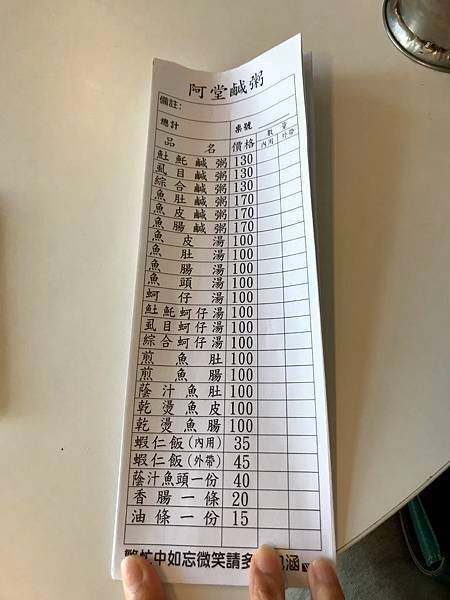 阿堂鹹粥
備註:
總計 桌號 數 量
品 名 價格 內用 外帶
𩵚魠鹹粥 130
虱目鹹粥 130
綜合鹹粥 130
魚肚鹹粥 170
魚皮鹹粥 170
魚腸鹹粥 170
魚皮湯 100
魚肚湯 100
魚腸湯 100
魚頭湯 100
蚵仔湯 100
𩵚魠蚵仔湯 100
虱目蚵仔湯 100
綜合蚵仔湯 100
煎魚肚 100
煎魚腸 100
蔭汁魚肚 100
乾燙魚皮 100
乾燙魚腸 100
蝦仁飯(內用) 35
蝦仁飯(外帶) 45
蔭汁魚頭一份 40
香腸一條 20
油條一份 15
繁忙中如忘微笑請多 涵